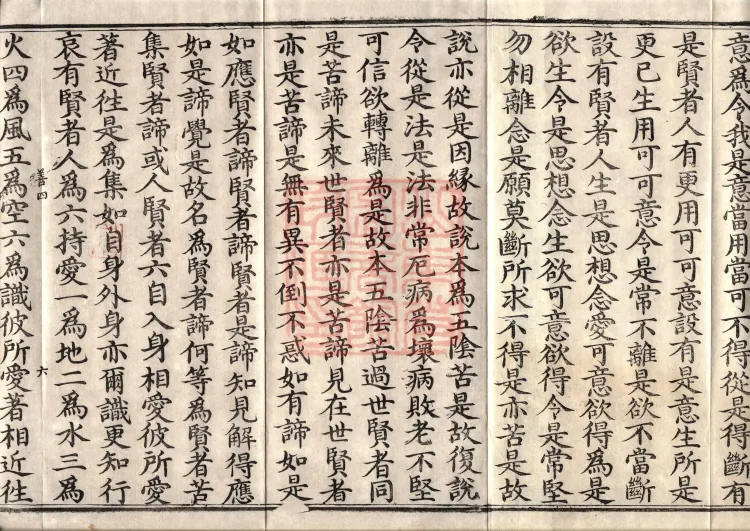 意為令我是意當用當可不得從是得斷有
是賢者人有更用可可意設有是意生所是
更已生用可可意令是常不離是欲不當斷
設有賢者人生是思想念愛可意欲得為是
欲生令是思想念生欲可意欲得令是常堅
勿相離念是願莫斷所求不得是亦苦是故
說亦從是因緣故說本為五陰苦是故復說
令從是法是法非常厄病為壞病敗老不堅
可信欲轉離為是故本五陰苦過世賢者同
是苦諦未來世賢者亦是苦諦見在世賢者
亦是苦諦是無有異不倒不惑如有諦如是
如應賢者諦賢者諦賢者是諦知見解得應
如是諦覺是故名為賢者諦何等為賢者苦
集賢者諦或人賢者六自入身相愛彼所愛
著近往是為集如自身外身亦爾識更知行
哀有賢者人為六持愛一為地二為水三為
善四
六
火四為風五為空六為識彼所愛著相近往